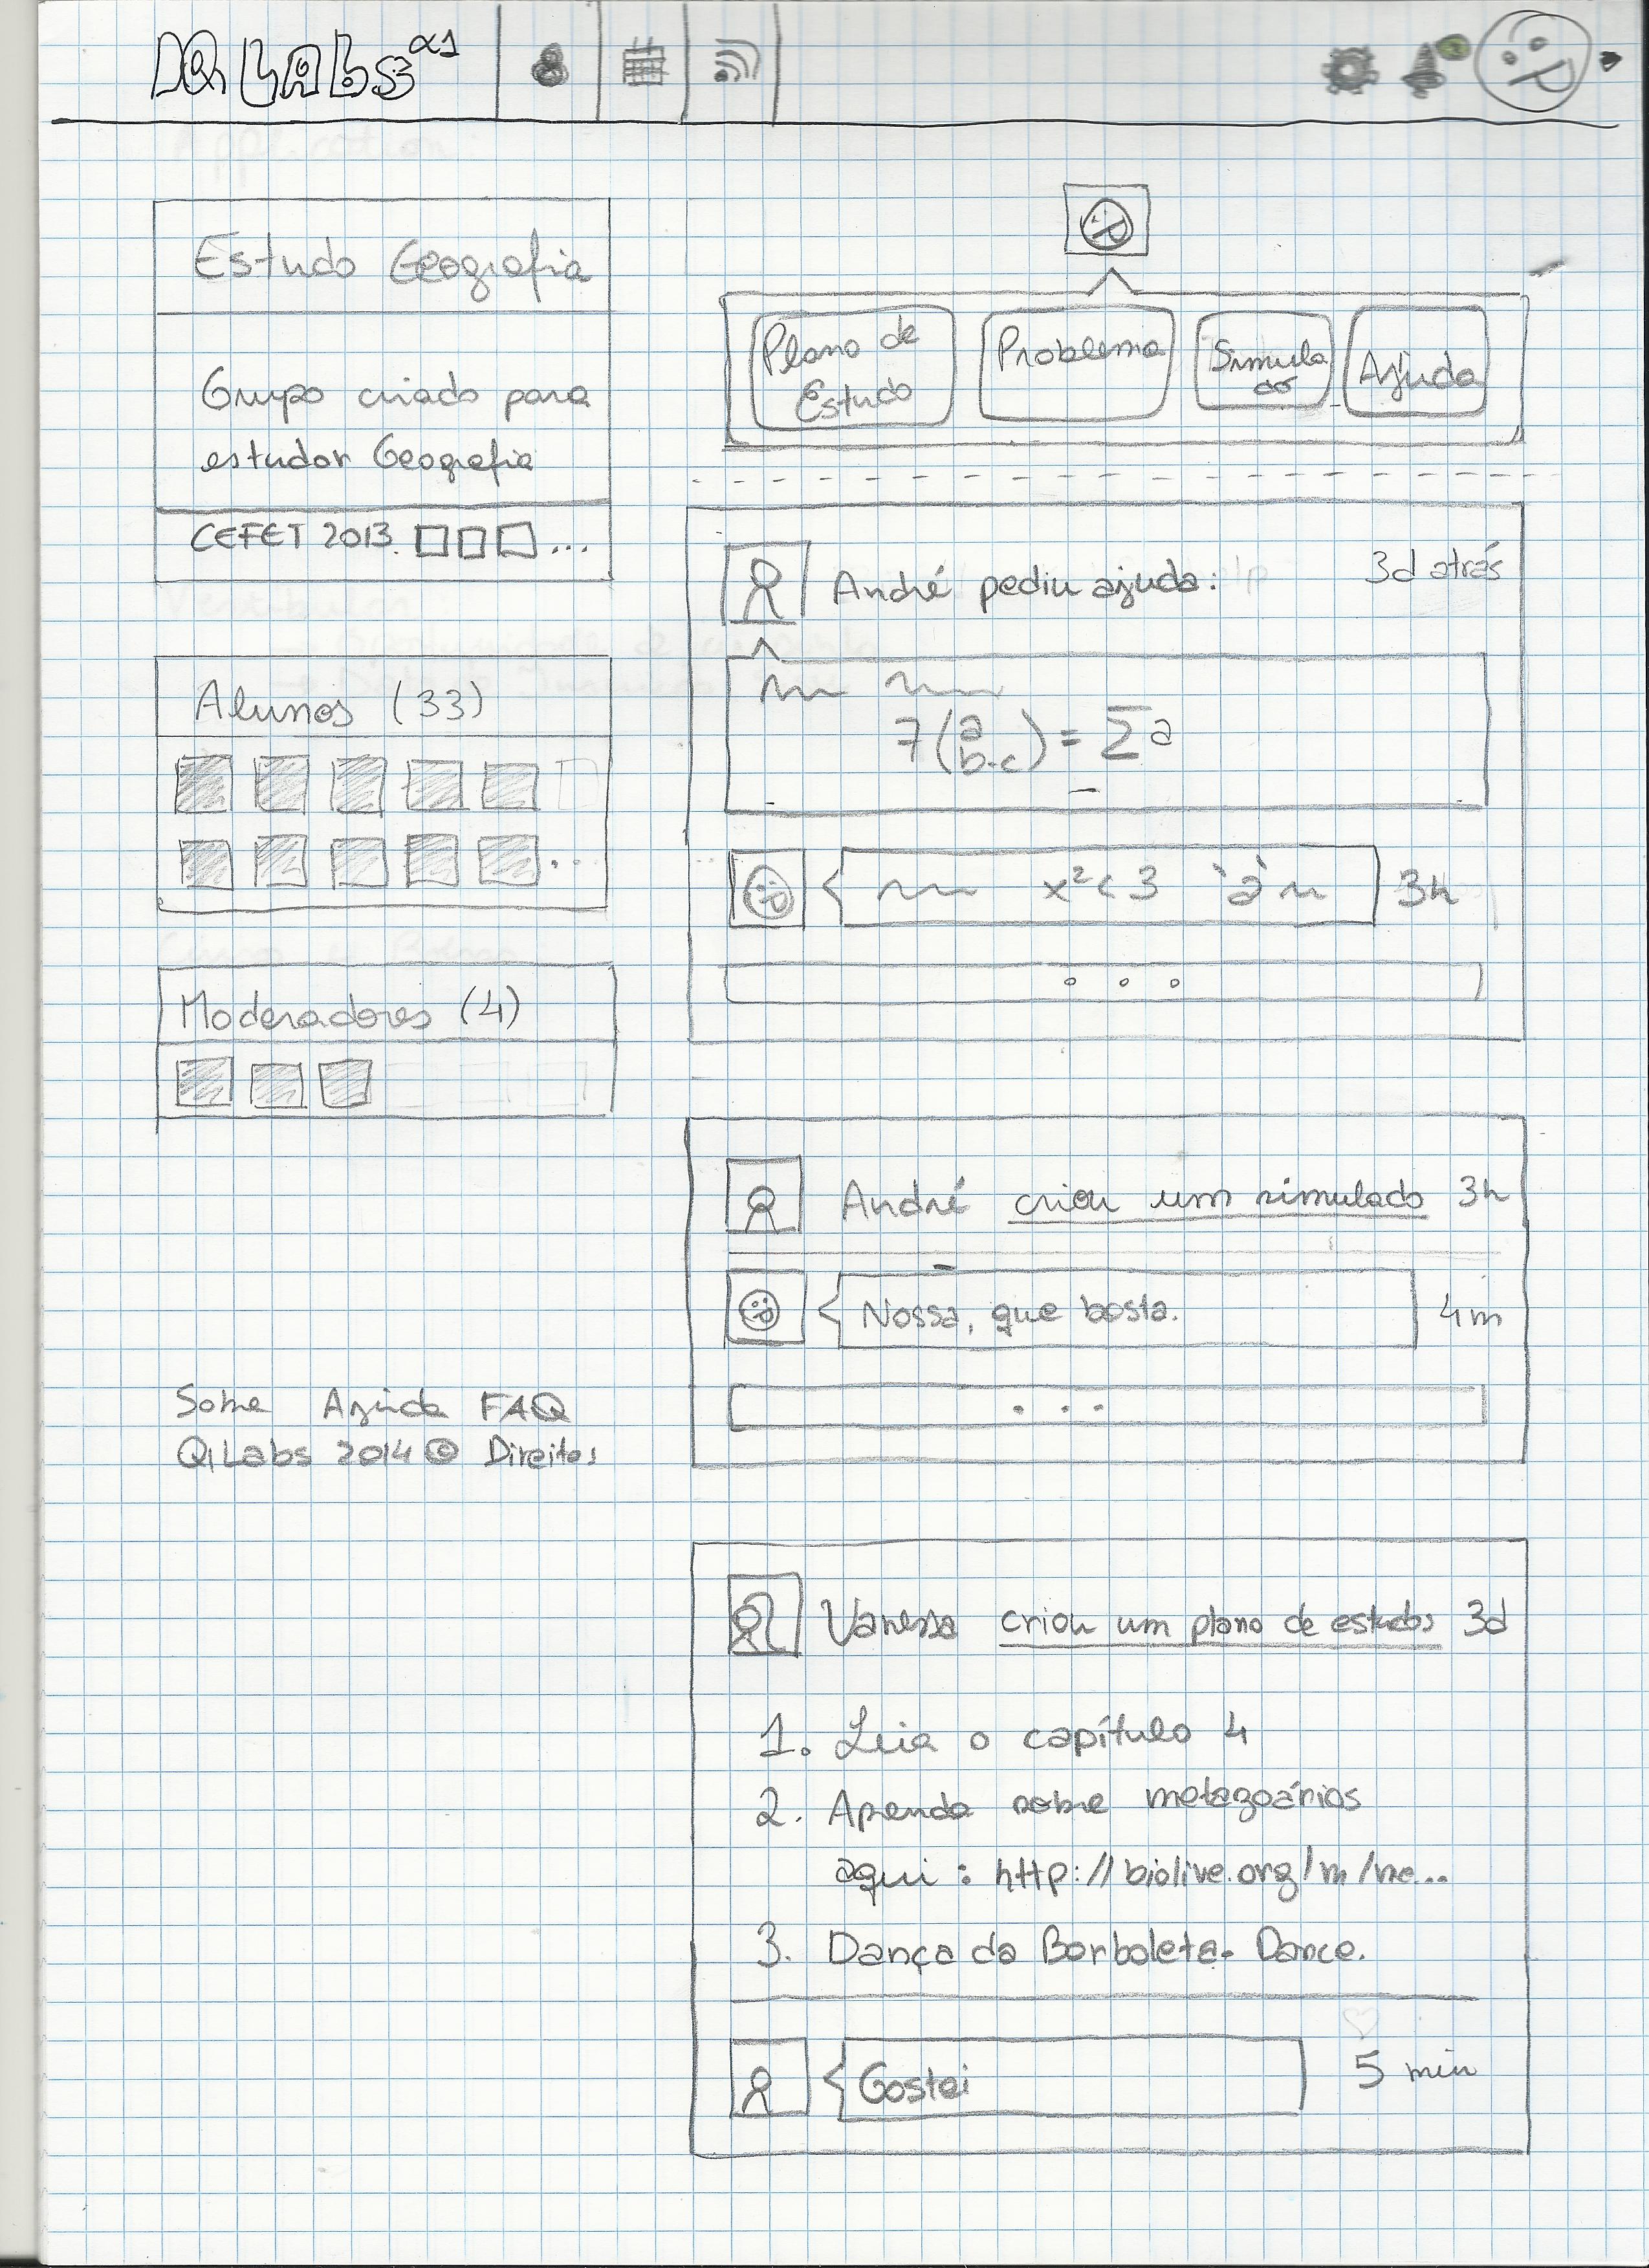 QI Labs α1
Estudo Geografia
Grupo criado para
estudar Geografia
CEFET 2013 ...
Alunos (33)
...
Moderadores (4)
Sobre Ajuda FAQ
QILabs 2014 © Direitos
Plano de
Estudo
Problema
Simula
do
Ajuda
André pediu ajuda: 3d atrás
7(a b-c) = Σa
x² < 3 `a` 3h
André criou um simulado 3h
Nossa, que bosta. 4m
Vanessa criou um plano de estudos 3d
1. Leia o capítulo 4
2. Aprenda sobre metazoários
aqui: http://biolive.org/m/me...
3. Dança da Borboleta. Dance.
Gostei 5 min